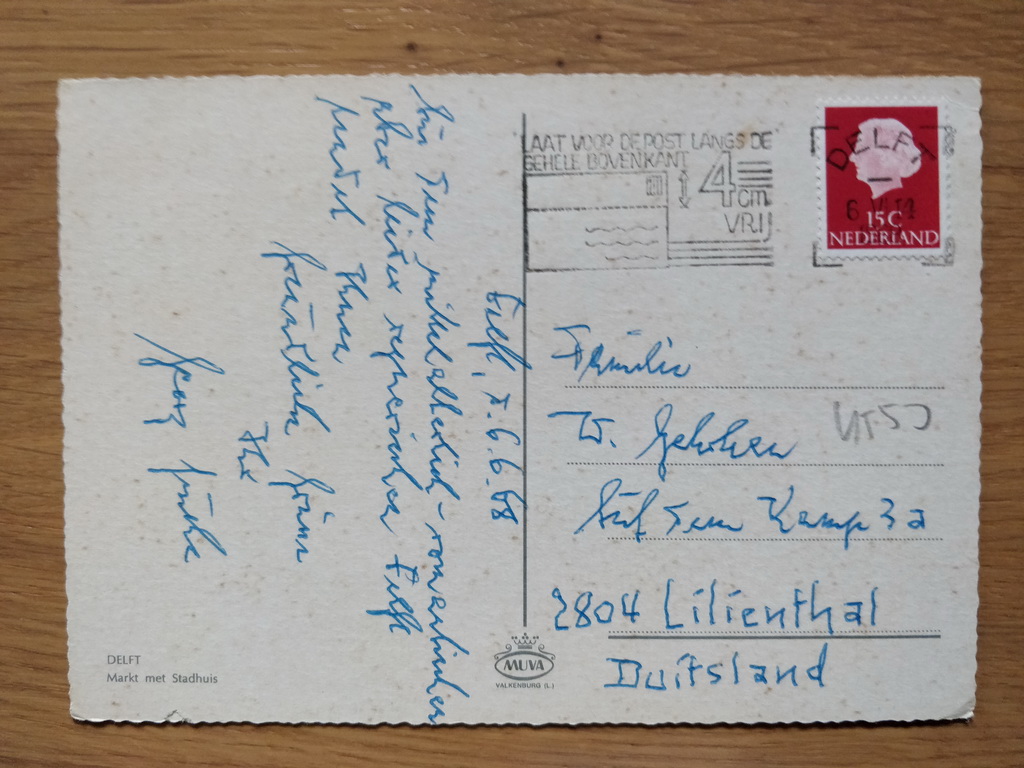 Delft, d. 6.6.68
Aus dem mittelalterlich-romantischen
aber leider regnerischen Delft
sendet Ihnen
freundliche Grüße
Ihr
Georg
LAAT VOOR DE POST LANGS DE
GEHELE BOVENKANT
4 cm
VRIJ
DELFT
15 C
NEDERLAND
Familie
W.
Auf dem Kamp 3a
2804 Lilienthal
Duitsland
MUVA
VALKENBURG (L.)
DELFT
Markt met Stadhuis